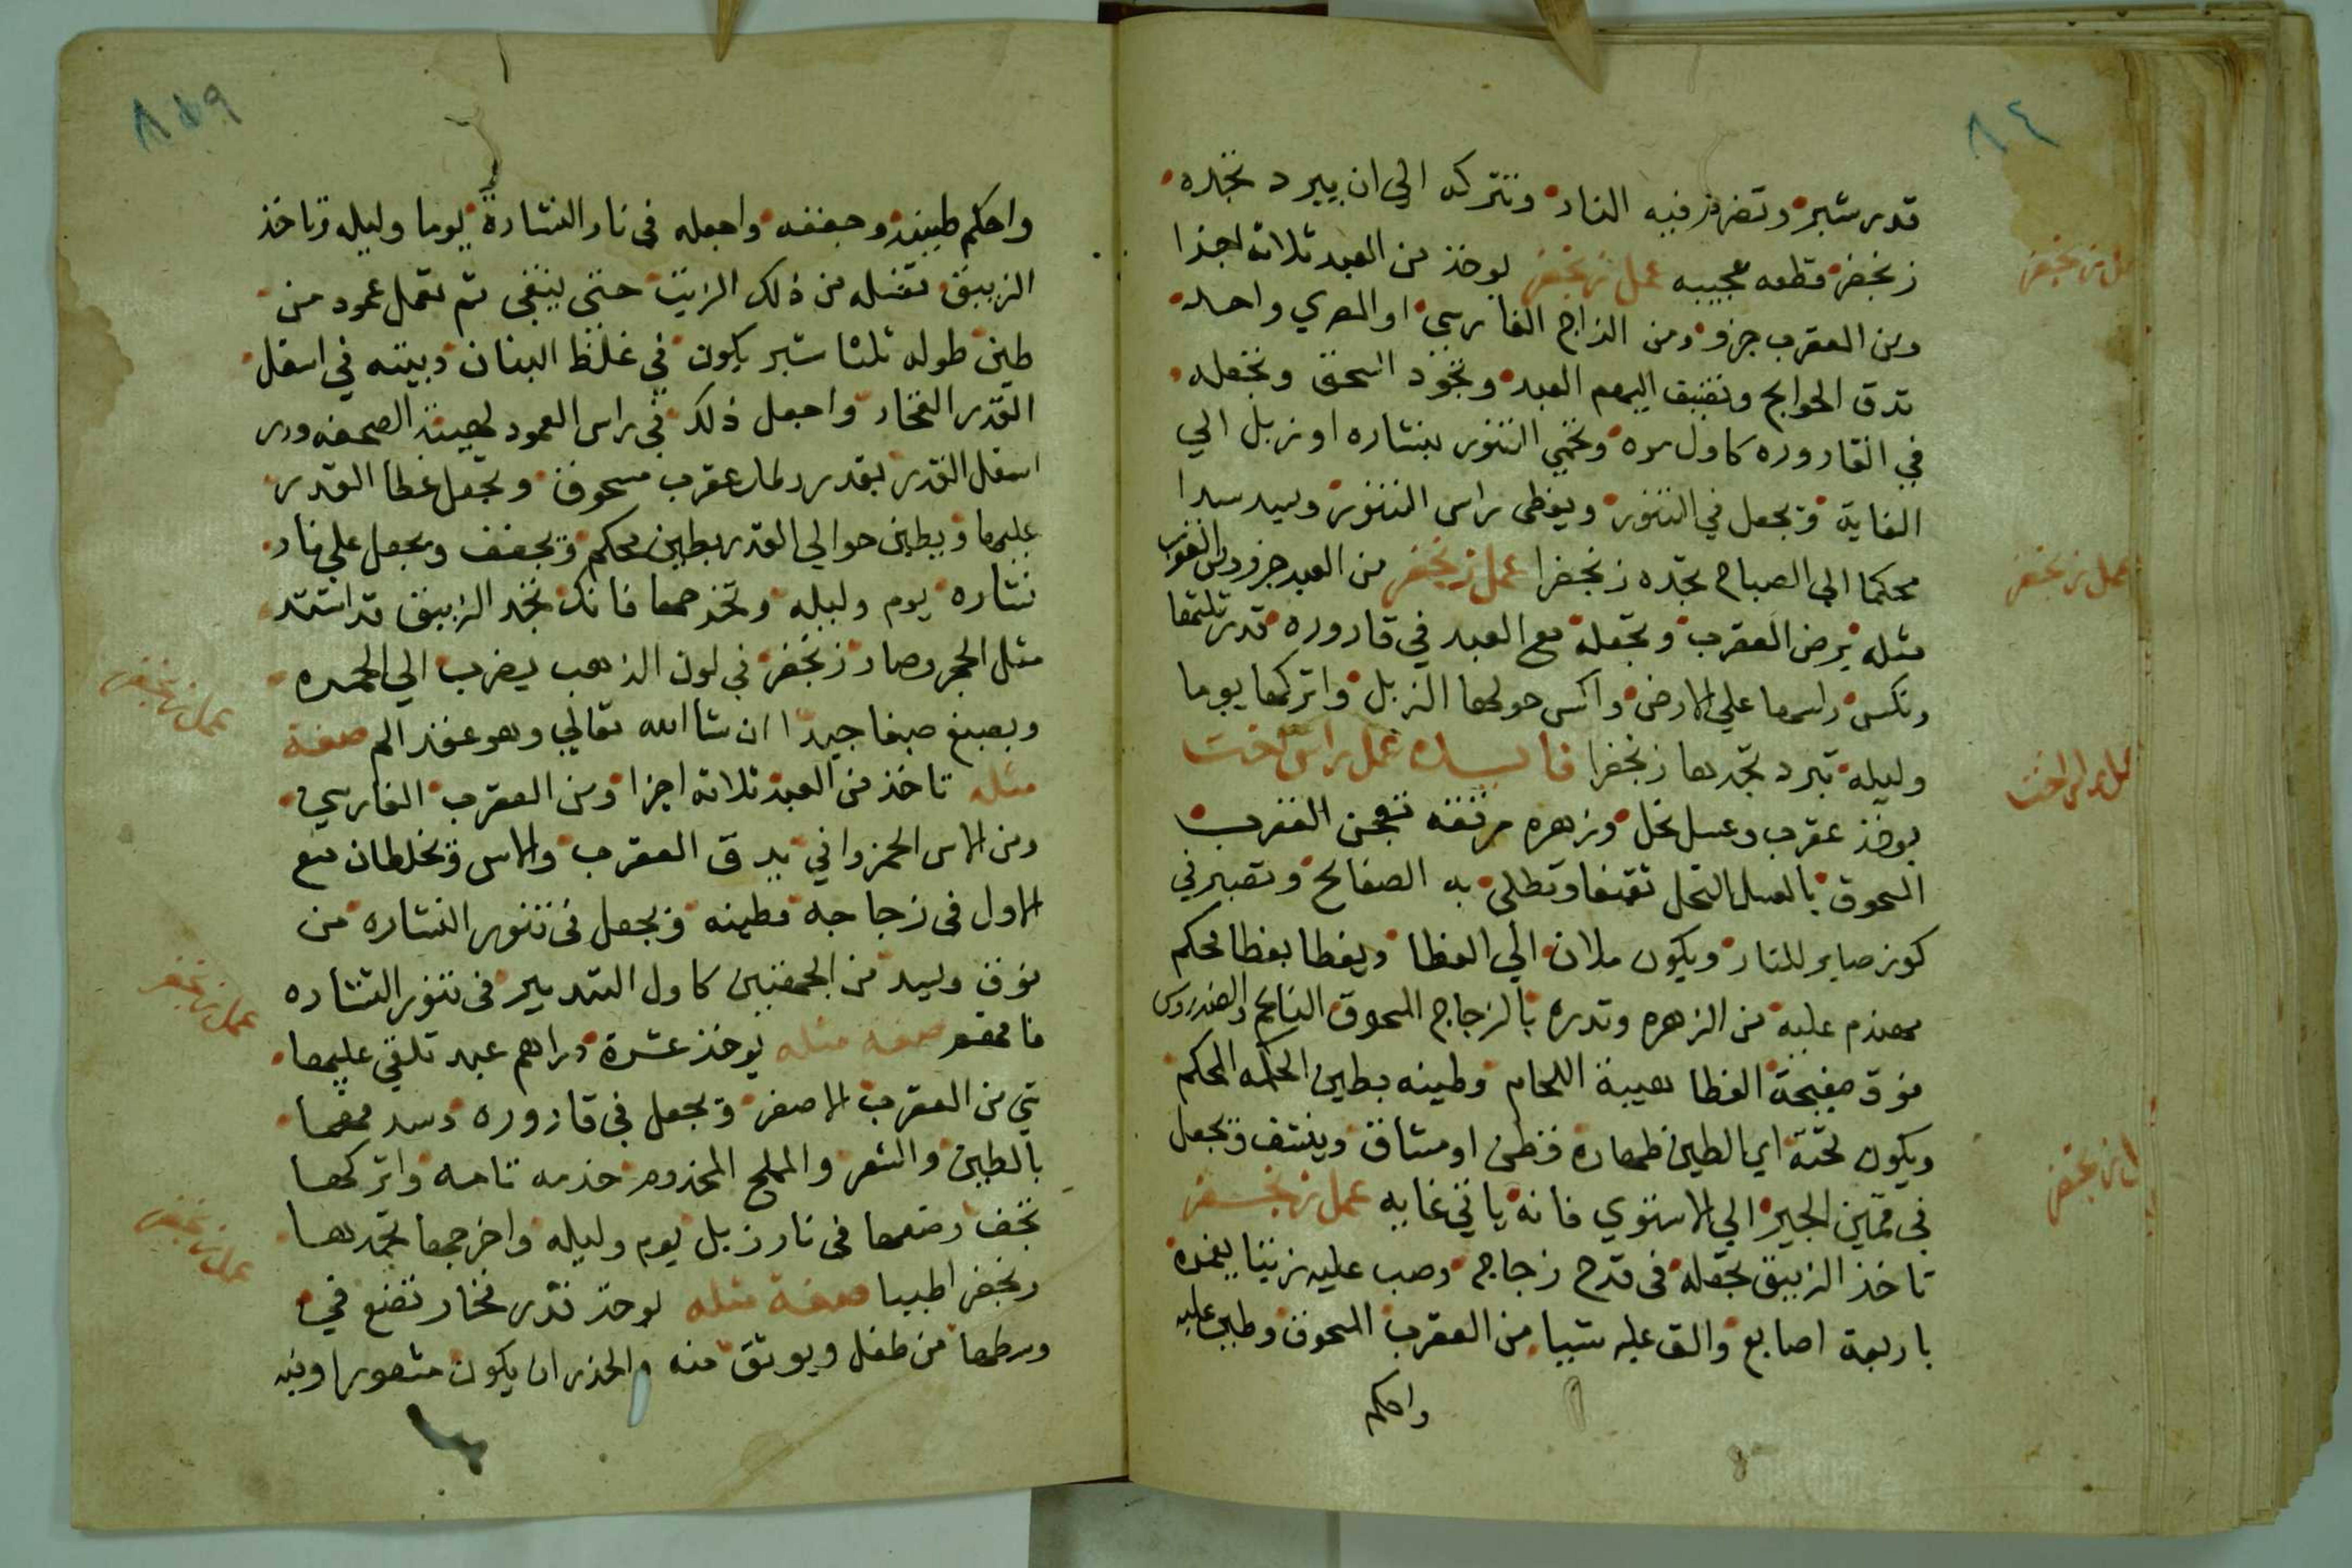 ٨٤
قدر شبر وتضرم فيه النار وتتركه الي ان يبرد تجده
زنجفر قطعه عجيبه عمل زنجفر يوخذ من العبد ثلاثة اجزا
ومن العقرب جزو ومن الزاج الفارسي او المصري واحد
تدق الحوايج وتضيف اليهم العبد وتجود السحق وتجعله
في القاروره كاول مره وتحمي التنور بنشاره او زبل الي
الغاية ويجعل في التنور ويغطى راس التنور ويسد سدا
محكما الي الصباح تجده زنجفرا عمل زنجفر من العبد جزو ومن العقرب
مثله يرض العقرب وتجعله مع العبد في قاروره قدر ثلثها
وتكس راسها علي الارض واكس حولها الزبل واتركها يوما
وليله تبرد تجدها زنجفرا فايده عمل راس اخت
يوخذ عقرب وعسل نحل وزهره مرتفعه تعجن العقرب
المسحوق بالعسل النحل وتطلى به الصفايح وتصير في
كوز صابر للنار ويكون ملان الي الغطا ويغطا بغطا محكم
مهندم عليه من الزهره وتدره بالزجاج المسحوق الناعم والصندروس
فوق صفيحة الغطا هيبة اللحام وطينه بطين الحكمه المحكم
ويكون تحته اي الطين طهارة قطن او مشاق وينشف ويجعل
في قمين الجير الي الاستوي فانه ياتي غايه عمل زنجفر
تاخذ الزيبق تجعله في قدح زجاج وصب عليه زيتا يغمره
باربعة اصابع والق عليه شيا من العقرب المسحوق وطين عليه
واحكم
عمل زنجفر
عمل زنجفر
عمل راس اخت
عمل زنجفر
واحكم طينه وجففه واجعله في نار النشارة يوما وليله وتاخذ
الزيبق تغسله من ذلك الزيت حتى ينقى ثم تعمل عمود من
طين طوله ثلثا شبر يكون في غلظ البنان وبيته في اسفل
القدر الفخار واجعل ذلك في راس العمود لهيئة الصحفه ودر
اسفل القدر بقدر رطل عقرب مسحوق وتجعل غطا القدر
عليها ويطين حوالي القدر بطين محكم ويجفف ويجعل علي نار
نشاره يوم وليله وتخرجها فانك تجد الزيبق قد اشتد
مثل الحجر وصار زنجفر في لون الذهب يضرب الي الحمره
ويصبغ صبغا جيدا ان شا الله تعالي وهو عقد الم صفة
مثله تاخذ من العبد ثلاثة اجزا ومن العقرب الفارسي
ومن الاس الحمزواني يدق العقرب والاس ويخلطان مع
الاول في زجاجه مطينه ويجعل في تنور النشاره من
فوق ويسد من الجهتين كاول التدبير في تنور النشاره
فافهم صفة مثله يوخذ عشرة دراهم عبد تلقي عليها
شي من العقرب الاصفر ويجعل في قاروره وسد فمها
بالطين والشعر والملح المخدوم خدمه تامه واتركها
تجف وضعها في نار زبل يوم وليله واخرجها تجدها
زنجفر اطيبا صفة مثله يوخذ قدر فخار تضع في
وسطها من طفل ويوثق منه والحذر ان يكون مشعورا وفيه
عمل زنجفر
عمل زنجفر
عمل زنجفر